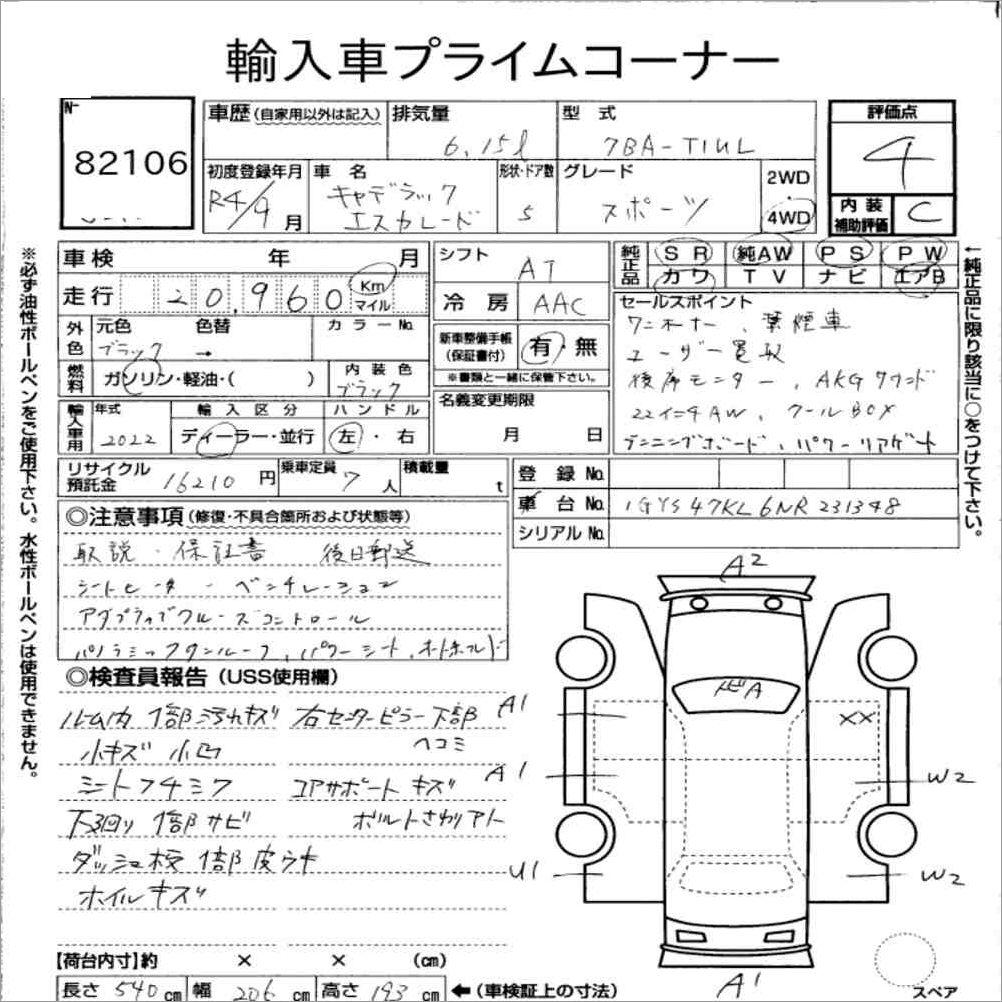 輸入車プライムコーナー
No
82106
車歴 (自家用以外は記入) 排気量 6.15ℓ 型式 7BA-T1UL
評価点 4
初度登録年月 R4/9月 車名 キャデラック エスカレード 形状・ドア数 5 グレード スポーツ 2WD 4WD
内装補助評価 C
車検 年 月
走行 20,960 Km マイル
外色 元色 ブラック 色替 → カラーNo.
燃料 ガソリン・軽油・( ) 内装色 ブラック
輸入車用 年式 2022 輸入区分 ディーラー・並行 ハンドル 左・右
シフト AT
冷房 AAC
新車整備手帳 (保証書付) 有 無
※書類と一緒に保管下さい。
名義変更期限
月 日
純正品 SR 純AW PS PW
カワ TV ナビ エアB
セールスポイント
ワンオーナー、禁煙車
ユーザー買取
後席モニター、AKGサウンド
22インチAW、クールBOX
ランニングボード、パワーリアゲート
リサイクル預託金 16210円 乗車定員 7人 積載量 t
登録No.
車台No. 1GYS47KL6NR231348
シリアルNo.
◎注意事項 (修復・不具合箇所および状態等)
取説・保証書 後日郵送
シートヒーター・ベンチレーション
アダプティブクルーズコントロール
パノラミックサンルーフ、パワーシート、オートホールド
◎検査員報告 (USS使用欄)
ルーム内 1部汚れキズ 右センターピラー下部
小キズ 小凹 ヘコミ
シートフチミワ コアサポートキズ
下廻り 1部サビ ボルトさわりアト
ダッシュ板 1部皮ウキ
ホイルキズ
A2
メビA
A1
XX
A1
W2
U1
W2
A1
スペア
【荷台内寸】約 × × (cm)
長さ 540cm 幅 206cm 高さ 193cm ←(車検証上の寸法)
※必ず油性ボールペンをご使用下さい。水性ボールペンは使用できません。
←純正品に限り該当に○をつけて下さい。